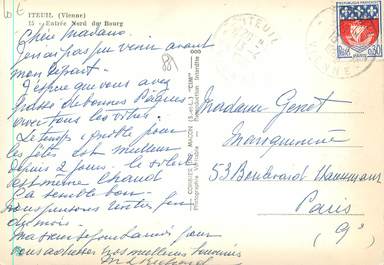 ITEUIL (Vienne)
15 - Entrée Nord du Bourg
Chère Madame.
Je n'ai pas pu venir avant
mon départ.
J'espère que vous avez
passé de bonnes Pâques
avec tous les vôtres.
Le temps ignoble pour
les fêtes est meilleur
depuis 2 jours. le soleil
est même chaud
nous pensons rentrer fin
du mois.
pour
vous adresser nos meilleurs souvenirs
COMBIER IMP. MACON (S.-et-L.) "CIM"
Photographie Véritable - Reproduction Interdite
ITEUIL
VIENNE
0,30
PARIS
Madame Genet
Maroquinerie
53 Boulevard Haussmann
Paris
(9e)